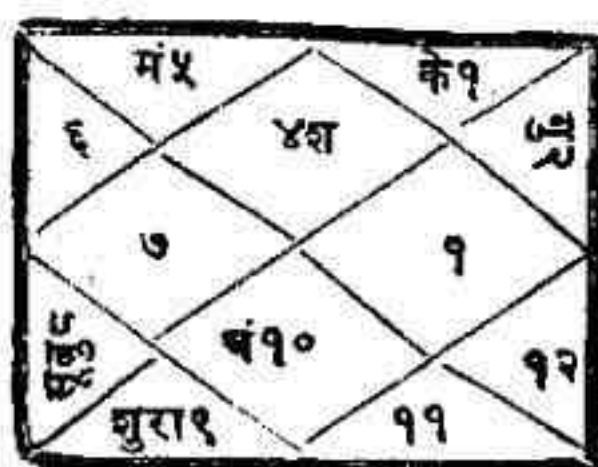 मं५ के१
६ ४श गु२
७ १
सूबु८ चं१० १२
शुरा९ ११